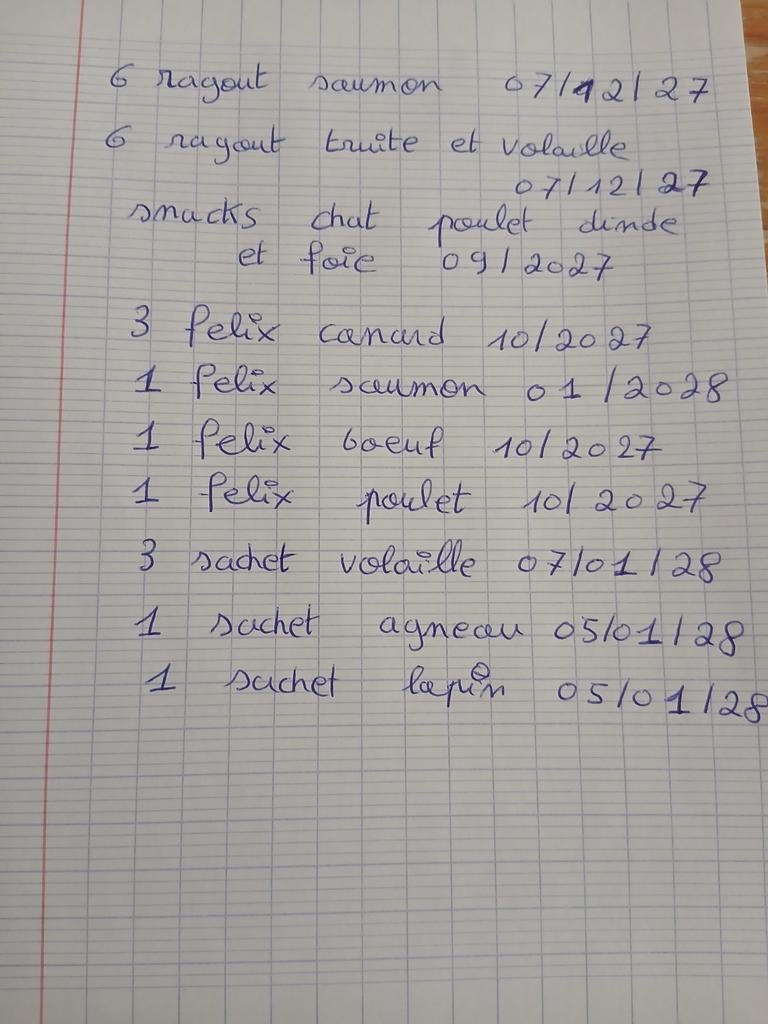 6 ragout saumon 07/12/27
6 ragout truite et volaille
07/12/27
snacks chat poulet dinde
et foie 09/2027
3 felix canard 10/2027
1 felix saumon 01/2028
1 felix boeuf 10/2027
1 felix poulet 10/2027
3 sachet volaille 07/01/28
1 sachet agneau 05/01/28
1 sachet lapin 05/01/28